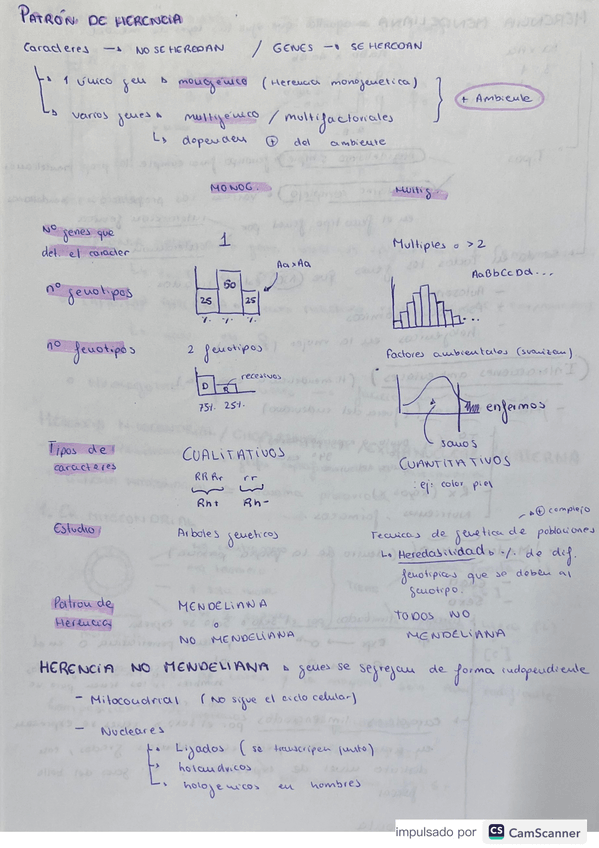 PATRÓN DE HERENCIA
Caracteres → NO SE HEREDAN / GENES → SE HEREDAN
↳ 1 único gen → monogénico (Herencia monogenética)
↳ varios genes → multigénico / multifactoriales
↳ dependen ⊕ del ambiente
+ Ambiente
MONOG. Multig.
Nº genes que det. el caracter
1
Multiples o > 2
nº genotipos
25 50 25
% % %
Aa x Aa
AaBbCcDd...
nº fenotipos
2 fenotipos
D R recesivos
75% 25%
Factores ambientales (suavizan)
enfermos
sanos
Tipos de caracteres
CUALITATIVOS
RR Rr rr
Rh+ Rh-
CUANTITATIVOS
ej: color piel
Estudio
Arboles geneticos
→ ⊕ complejo
Tecnicas de genética de poblaciones
↳ Heredabilidad → % de dif.
fenotípicas que se deben al
genotipo.
Patron de Herencia
MENDELIANA
o
NO MENDELIANA
TODOS NO
MENDELIANA
HERENCIA NO MENDELIANA → genes se segregan de forma independiente
- Mitocondrial (No sigue el ciclo celular)
- Nucleares
↳ Ligados (se transcriben junto)
↳ holandricos
↳ hologenicos en hombres
impulsado por CS CamScanner